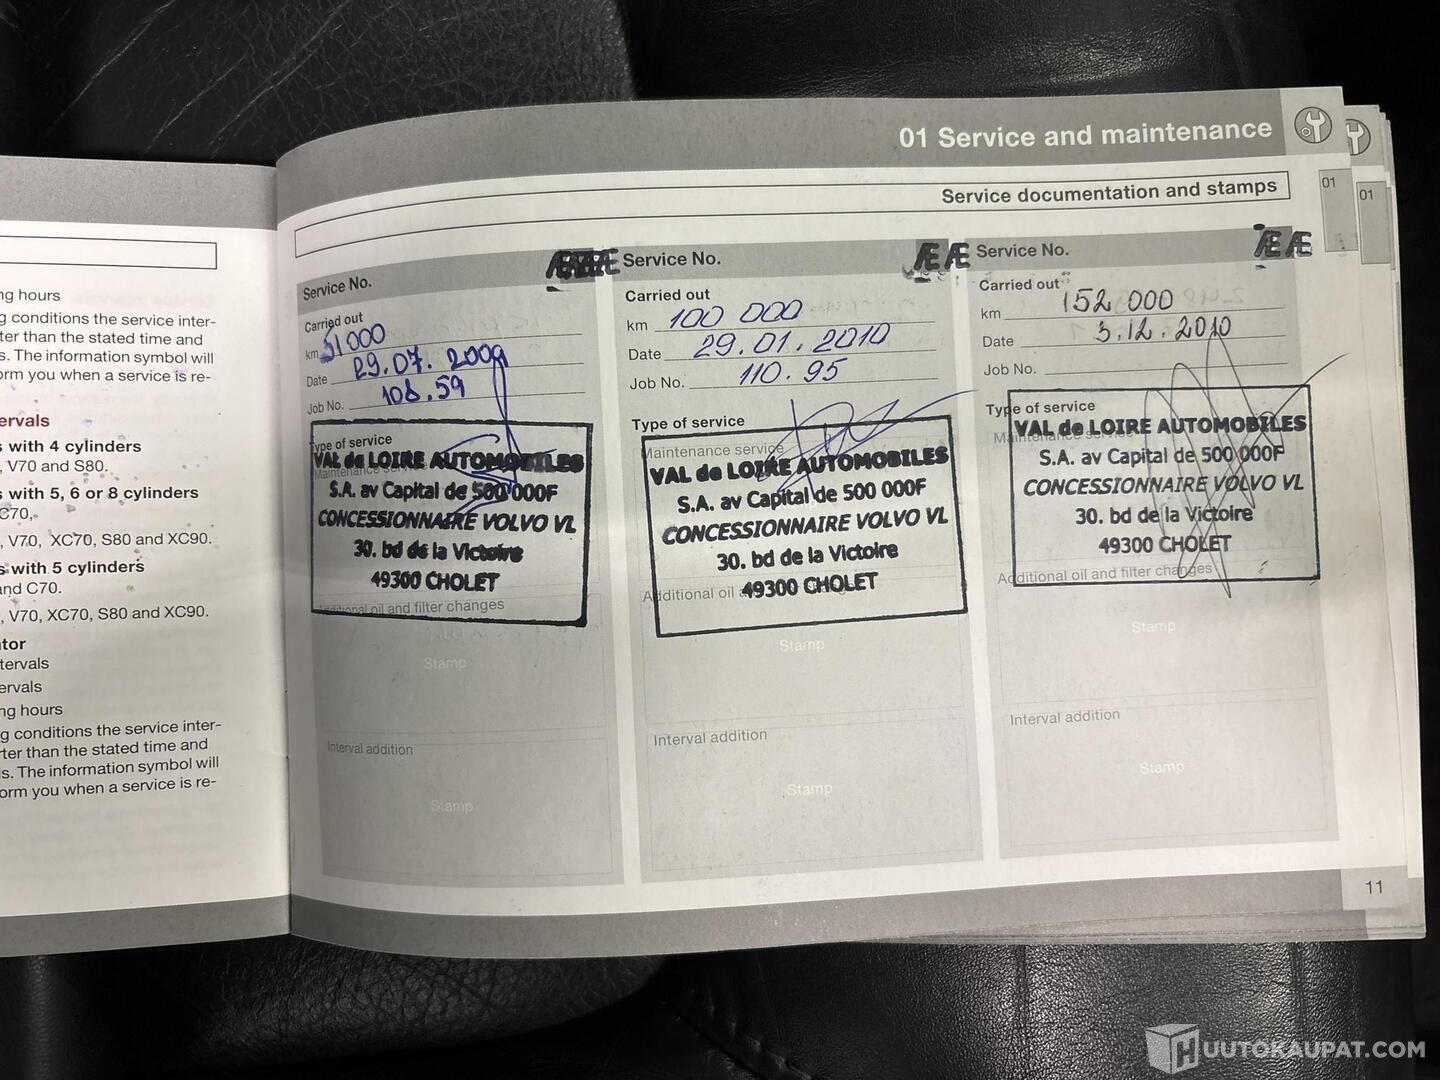 ng hours
g conditions the service inter-
ter than the stated time and
s. The information symbol will
orm you when a service is re-
ervals
s with 4 cylinders
, V70 and S80.
s with 5, 6 or 8 cylinders
C70,
, V70, XC70, S80 and XC90.
s with 5 cylinders
and C70.
, V70, XC70, S80 and XC90.
tor
tervals
ervals
ng hours
g conditions the service inter-
rter than the stated time and
ls. The information symbol will
orm you when a service is re-
01 Service and maintenance
01
01
Service documentation and stamps
Service No.
Carried out
km 51000
Date 29.07.2009
Job No. 108.59
Type of service
VAL de LOIRE AUTOMOBILES
S.A. av Capital de 500 000F
CONCESSIONNAIRE VOLVO VL
30. bd de la Victoire
49300 CHOLET
Additional oil and filter changes
Stamp
Interval addition
Stamp
Service No. Æ Æ
Carried out
km 100 000
Date 29.01.2010
Job No. 110.95
Type of service
Maintenance service
VAL de LOIRE AUTOMOBILES
S.A. av Capital de 500 000F
CONCESSIONNAIRE VOLVO VL
30. bd de la Victoire
49300 CHOLET
Additional oil a
Stamp
Interval addition
Stamp
Service No. Æ Æ
Carried out
km 152 000
Date 3.12.2010
Job No.
Type of service
VAL de LOIRE AUTOMOBILES
S.A. av Capital de 500 000F
CONCESSIONNAIRE VOLVO VL
30. bd de la Victoire
49300 CHOLET
Additional oil and filter changes
Stamp
Interval addition
Stamp
11
HUUTOKAUPAT.COM